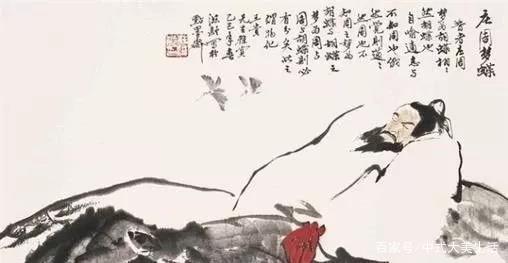 庄周梦蝶
昔者庄周
梦为胡蝶栩栩
然胡蝶也
自喻适志与
不知周也俄
然觉则蘧蘧
然周也不
知周之梦为
胡蝶与胡蝶之
梦为周与
周与胡蝶则必
有分矣此之
谓物化
先生雅赏
百家号/中式大美生活